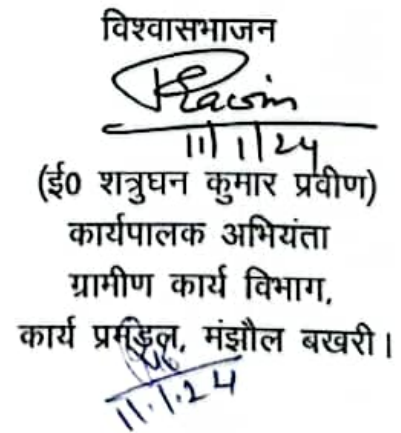 विश्वासभाजन
Pravin
11/1/24
(ई0 शत्रुघन कुमार प्रवीण)
कार्यपालक अभियंता
ग्रामीण कार्य विभाग,
कार्य प्रमंडल, मंझौल बखरी।
11.1.24